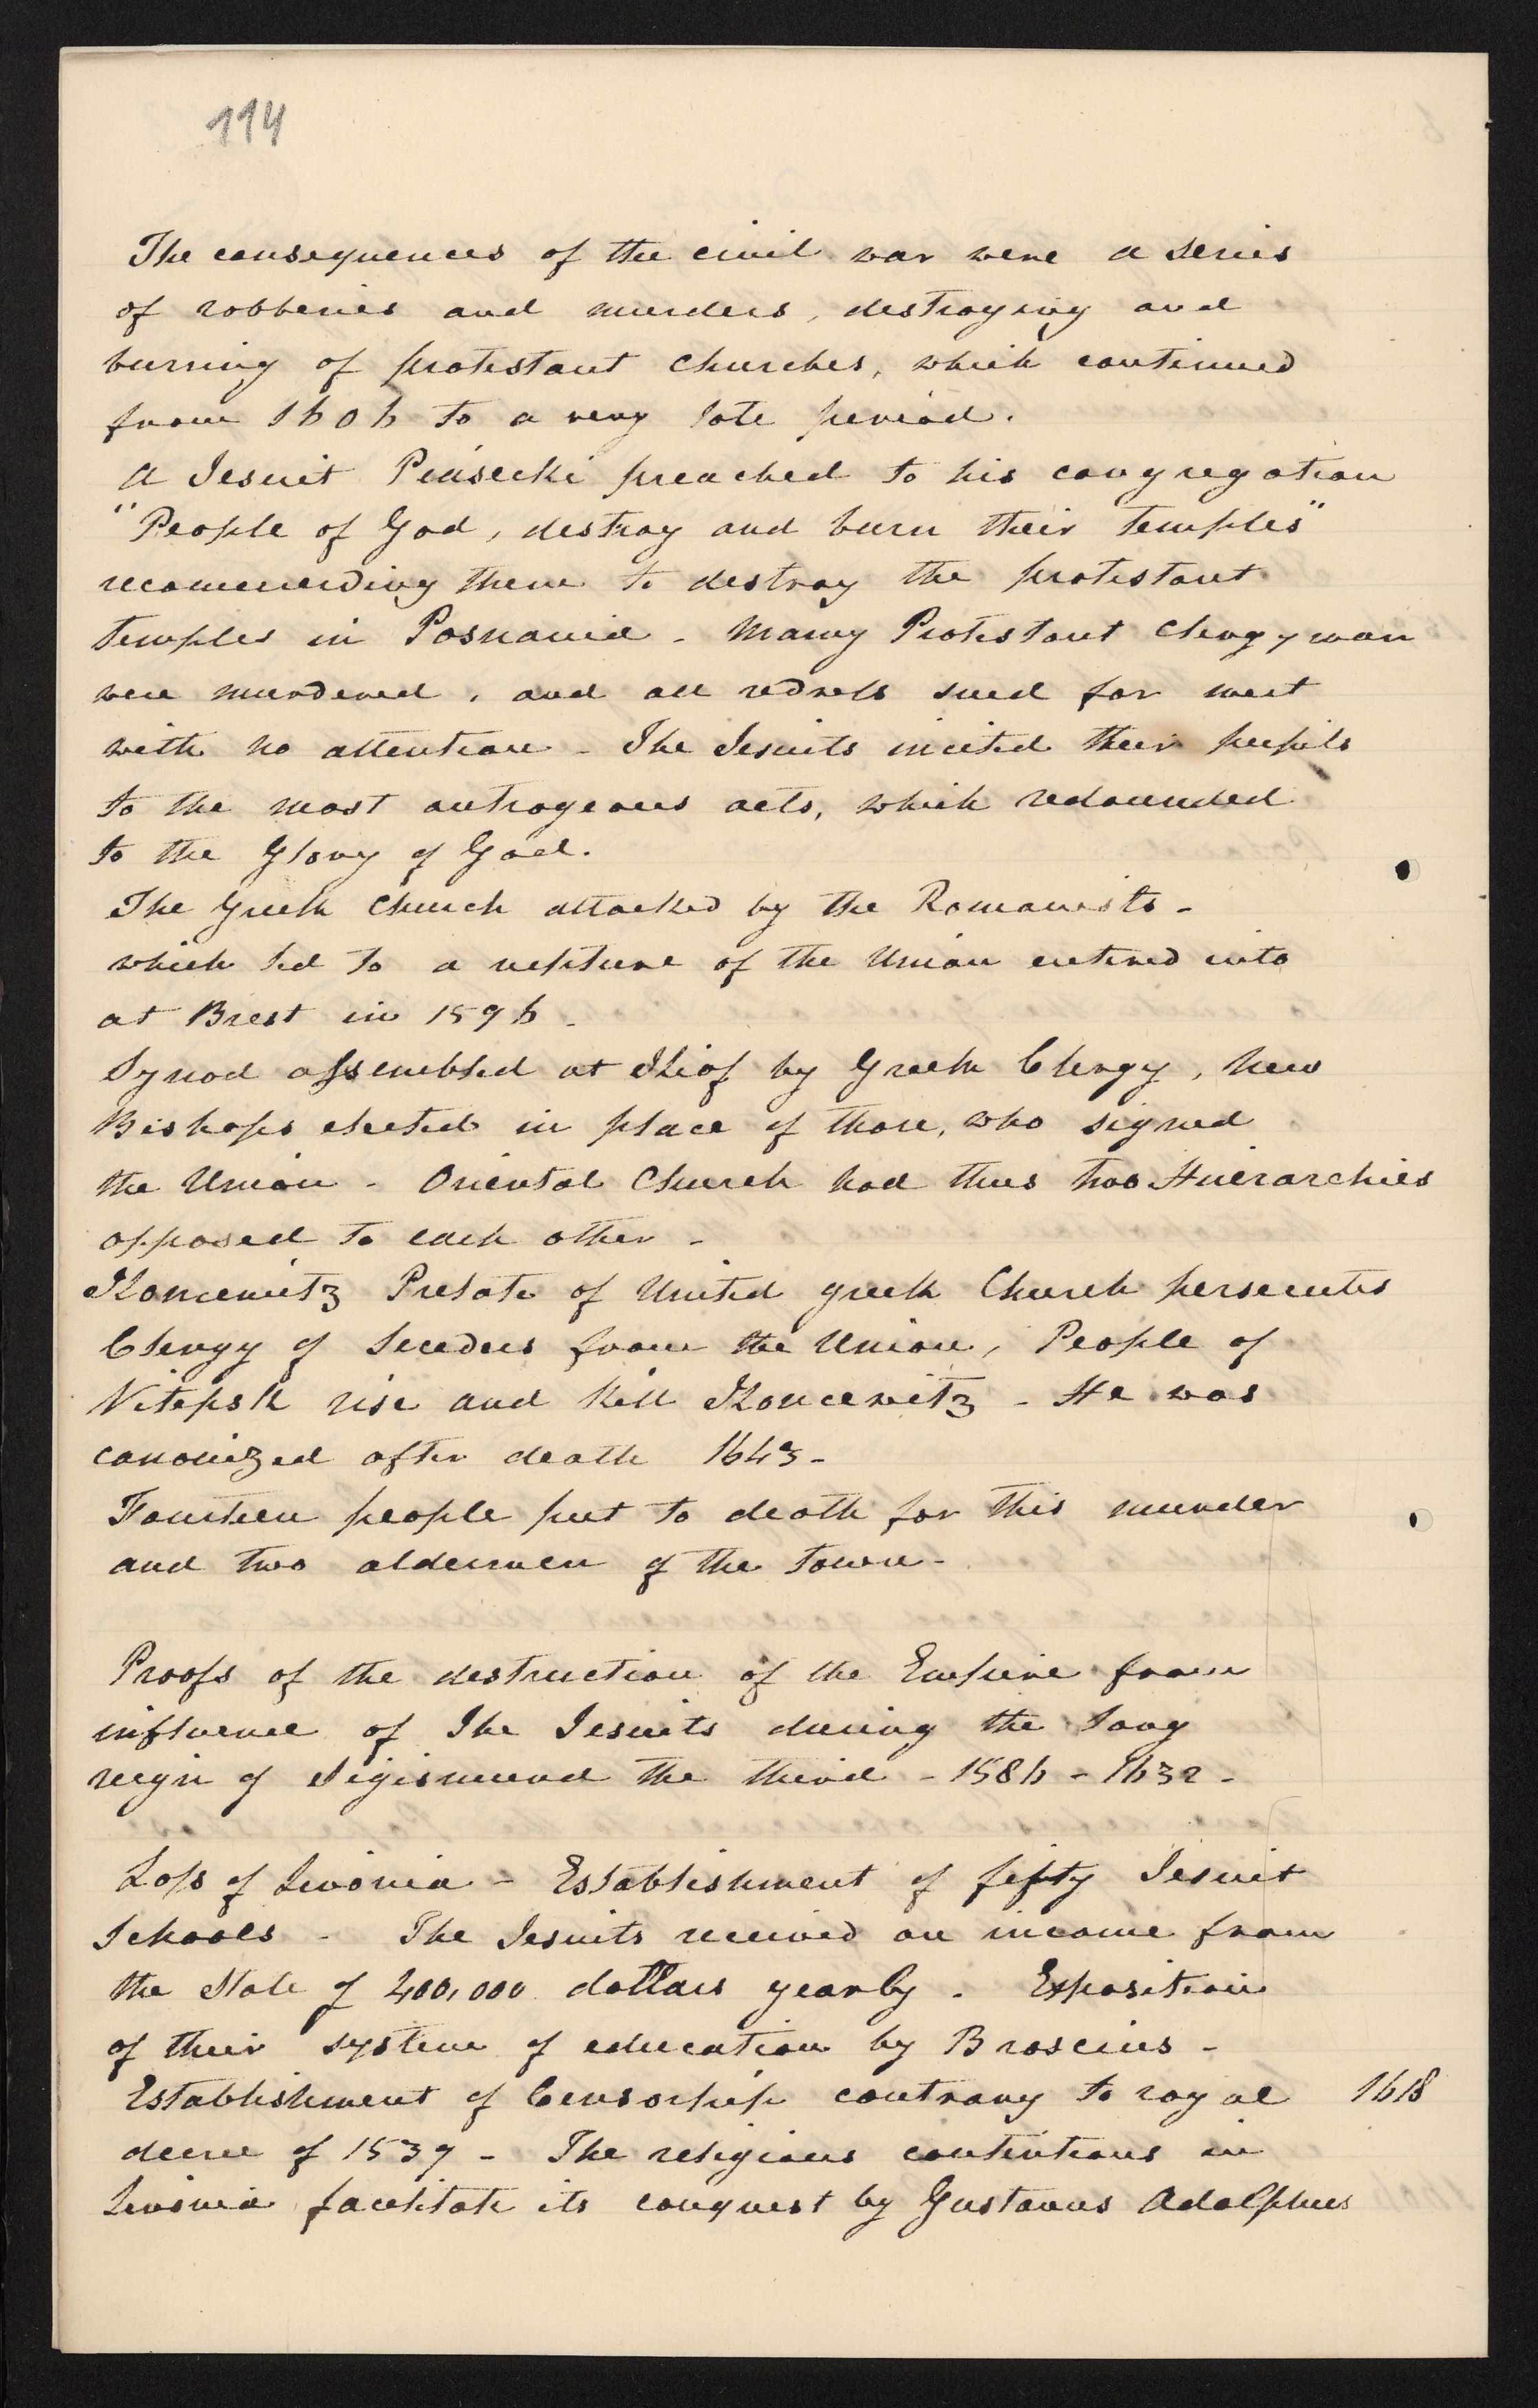 114
The consequences of the civil war were a series
of robberies and murders, destroying and
burning of protestant churches, which continued
from 1606 to a very late period.
A Jesuit Piasecki preached to his congregation
"People of God, destroy and burn their temples"
recommending them to destroy the protestant
temples in Posnania - Many Protestant Clergyman
were murdered, and all redress sued for meet
with no attention - The Jesuits incited their pupils
to the most outrageous acts, which redounded
to the Glory of God.
The Greek Church attacked by the Romanists -
which led to a rupture of the Union entered into
at Brest in 1596 -
Synod assembled at Kiof by Greek Clergy, New
Bishops elected in place of those, who signed
the Union - Oriental Church had thus two Hierarchies
opposed to each other -
Koncewitz Prelate of United greek Church persecutes
Clergy of Seceders from the Union, People of
Vitepsk rise and kill Koncewitz - He was
canonized after death 1643 -
Fourteen people put to death for this murder
and two aldermen of the town -
Proofs of the destruction of the Empire from
influence of The Jesuits during the long
reign of Sigismund the third - 1586 - 1632 -
Loss of Livonia - Establishment of fifty Jesuit
Schools - The Jesuits received an income from
the State of 400,000 dollars yearly. Exposition
of their system of education by Broscius -
Establishment of Censorship contrary to royal 1618
decree of 1539 - The religious contentions in
Livonia facilitate its conquest by Gustavus Adolphus